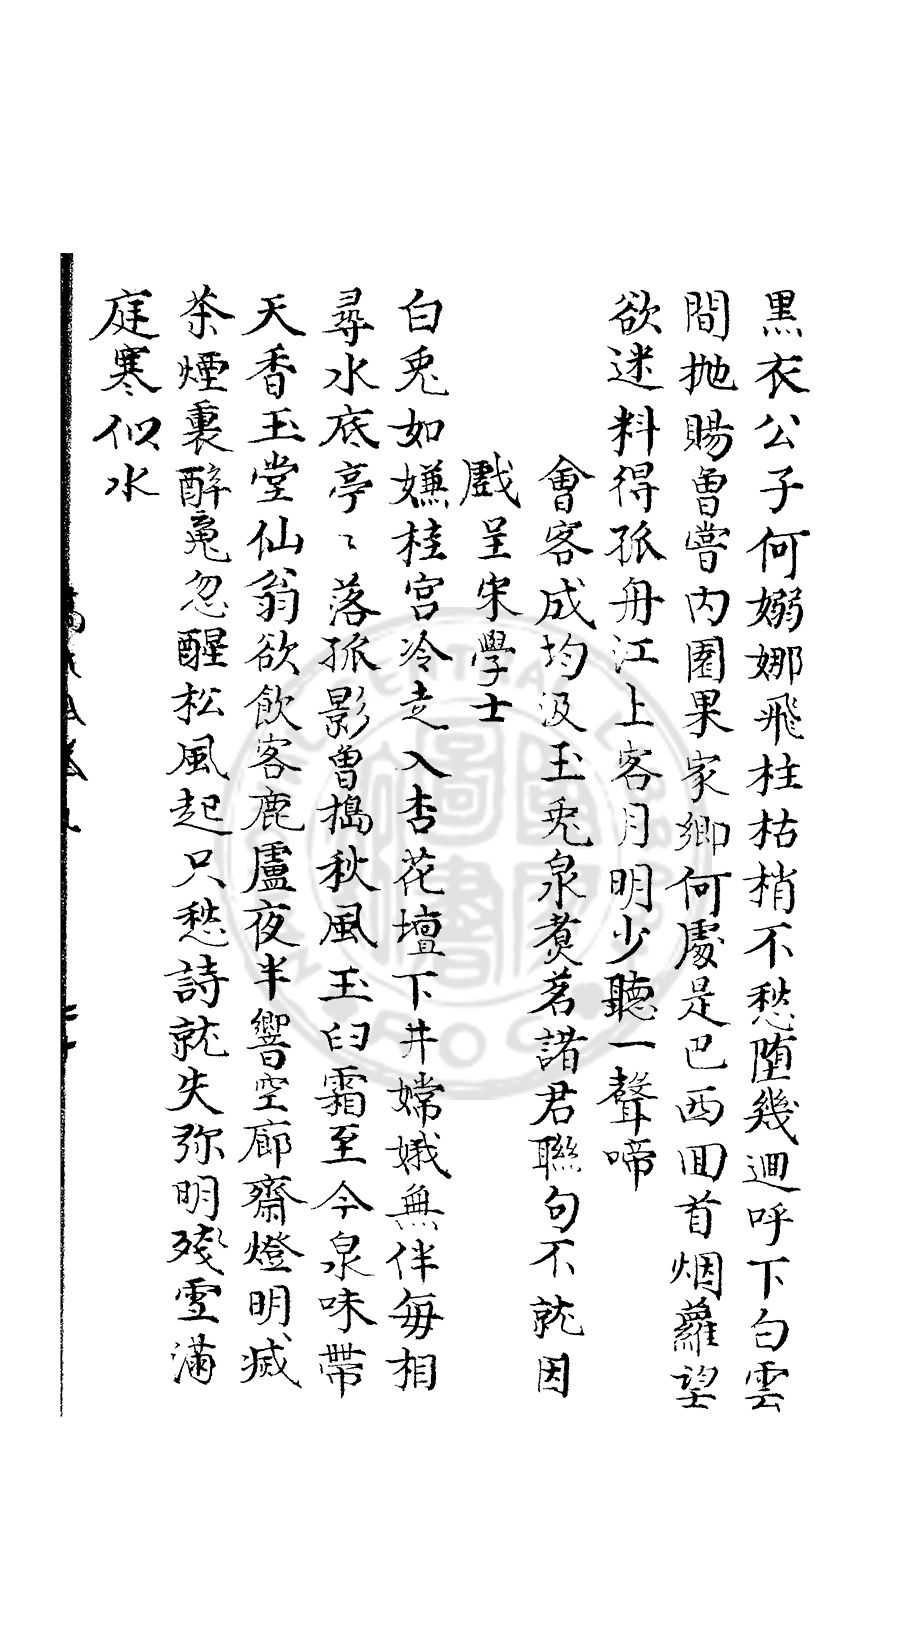 黒衣公子何嫋娜飛柱枯梢不愁墮幾迴呼下白雲
間抛賜曽嘗内園果家鄉何處是巴西回首烟蘿望
欲迷料得孤舟江上客月明少聽一聲啼
會客成均汲玉兎泉煑茗諸君聯句不就因
戲呈宋學士
白兎如嫌桂宮冷走入杏花壇下井嫦娥無伴毎相
尋水底亭〻落孤影曽搗秋風玉臼霜至今泉味帶
天香玉堂仙翁欲飲客鹿盧夜半響空廊齋燈明滅
茶煙裏醉䰟忽醒松風起只愁詩就失弥明殘雪滿
庭寒似水